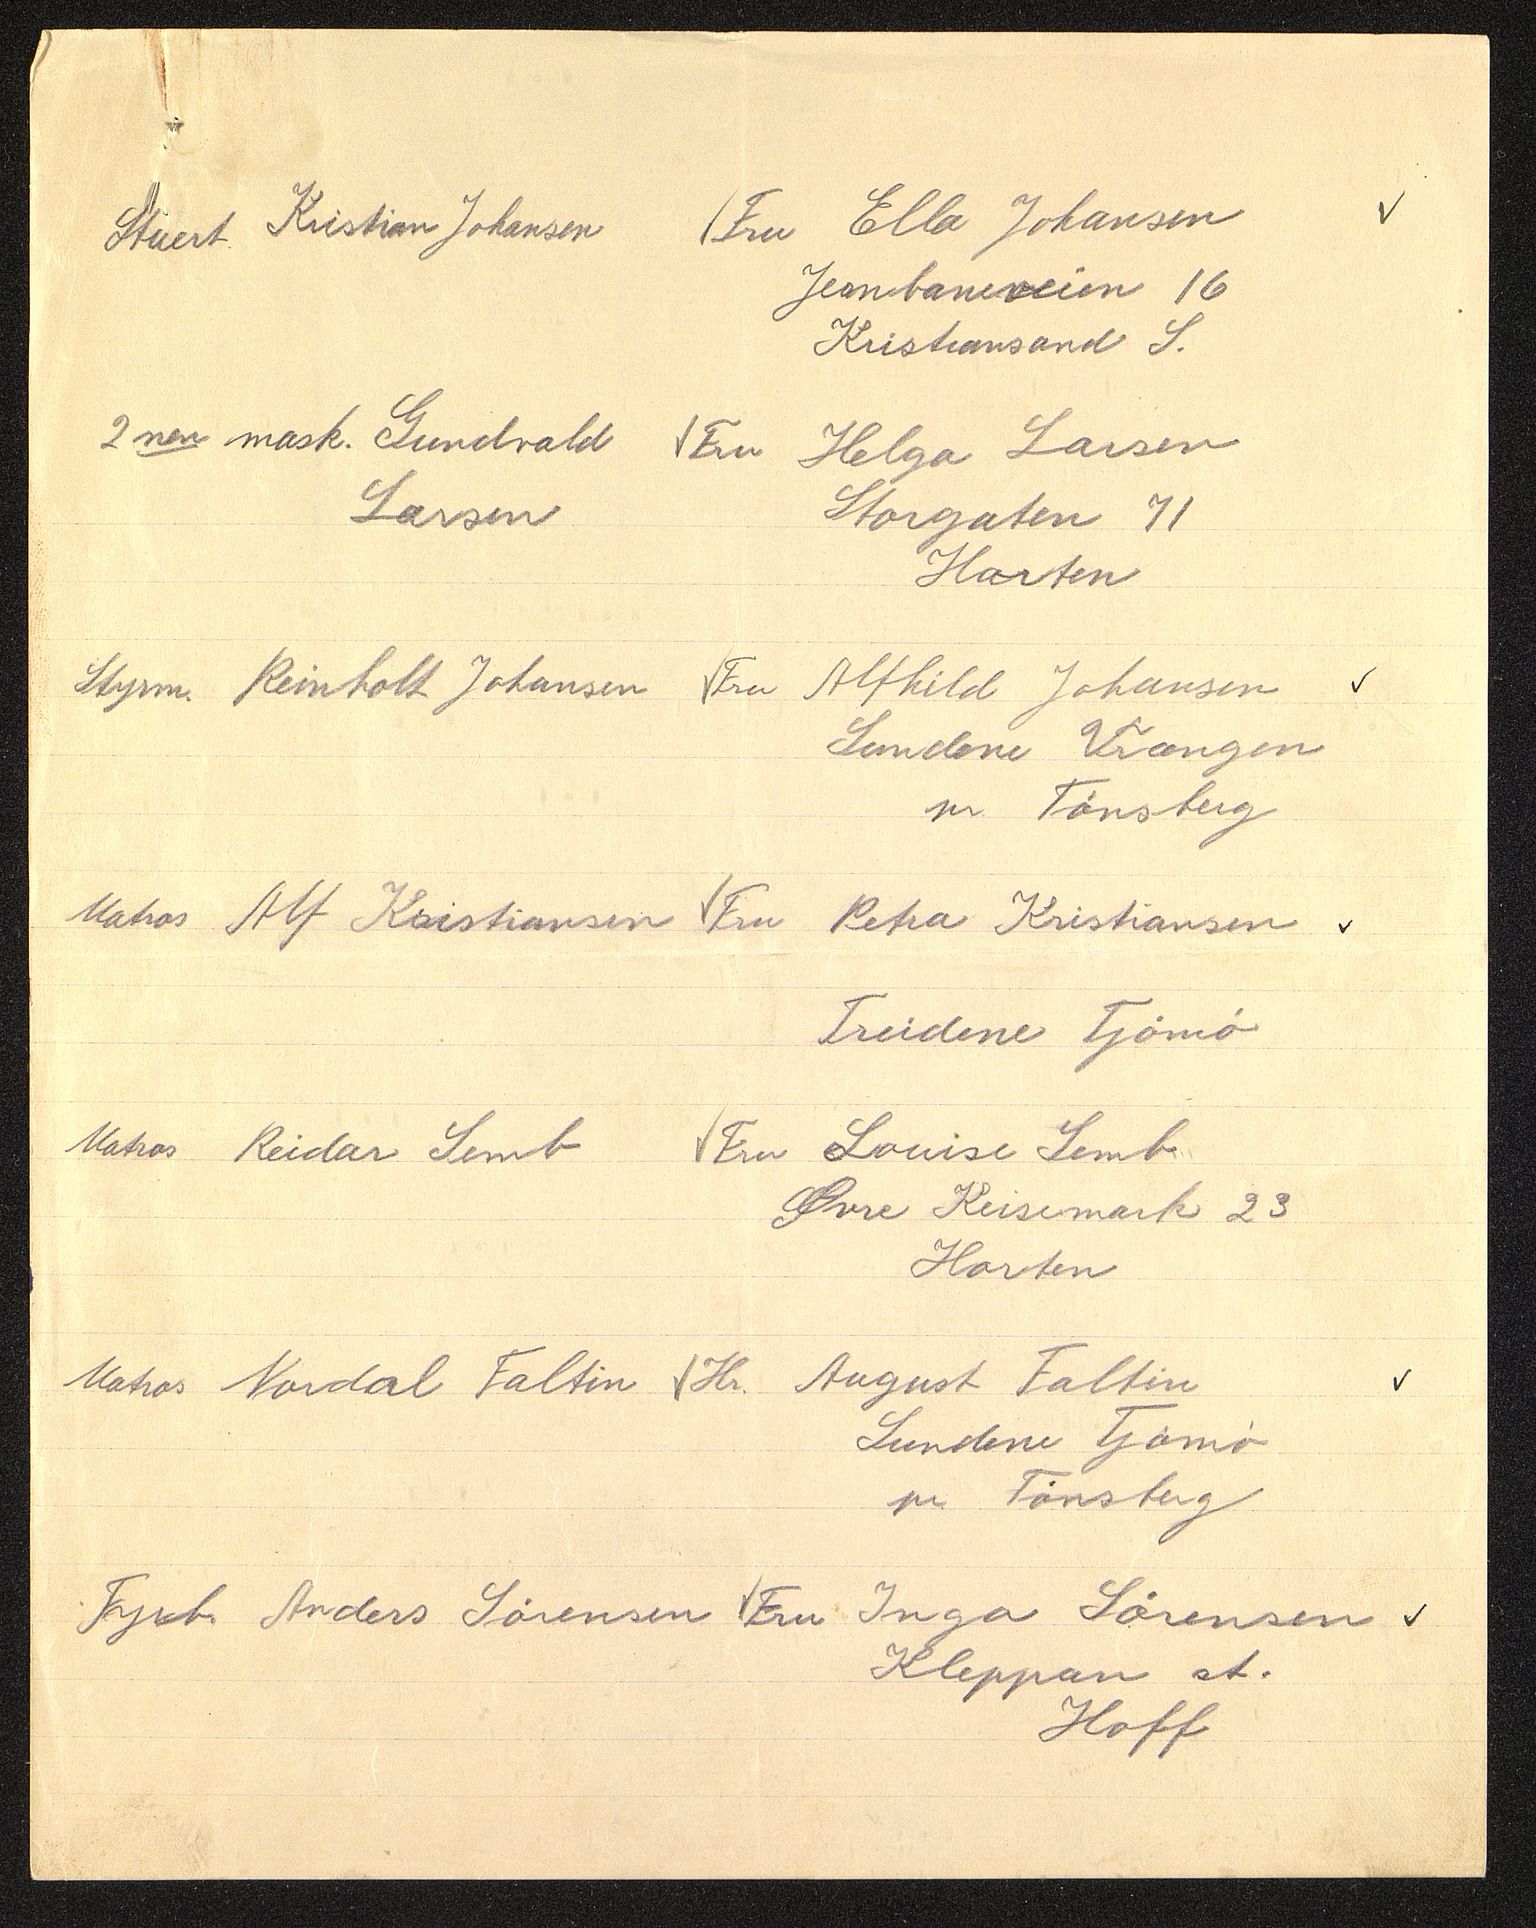 Stuert Kristian Johansen √ Fru Ella Johansen √
Jernbaneveien 16
Kristiansand S.
2nen mask. Gundvald √ Fru Helga Larsen
Larsen Storgaten 71
Horten
Styrm. Reinholt Johansen √ Fru Alfhild Johansen √
Sundene Vrængen
pr. Tönsberg
Matros Alf Kristiansen √ Fru Petra Kristiansen √
Treidene Tjömö
Matros Reidar Semb √ Fru Louise Semb
Øvre Keisemark 23
Horten
Matros Nordal Faltin √ Hr. August Faltin √
Sundene Tjömö
pr. Tönsberg
Fyrb. Anders Sörensen √ Fru Inga Sörensen √
Kleppan st.
Hoff